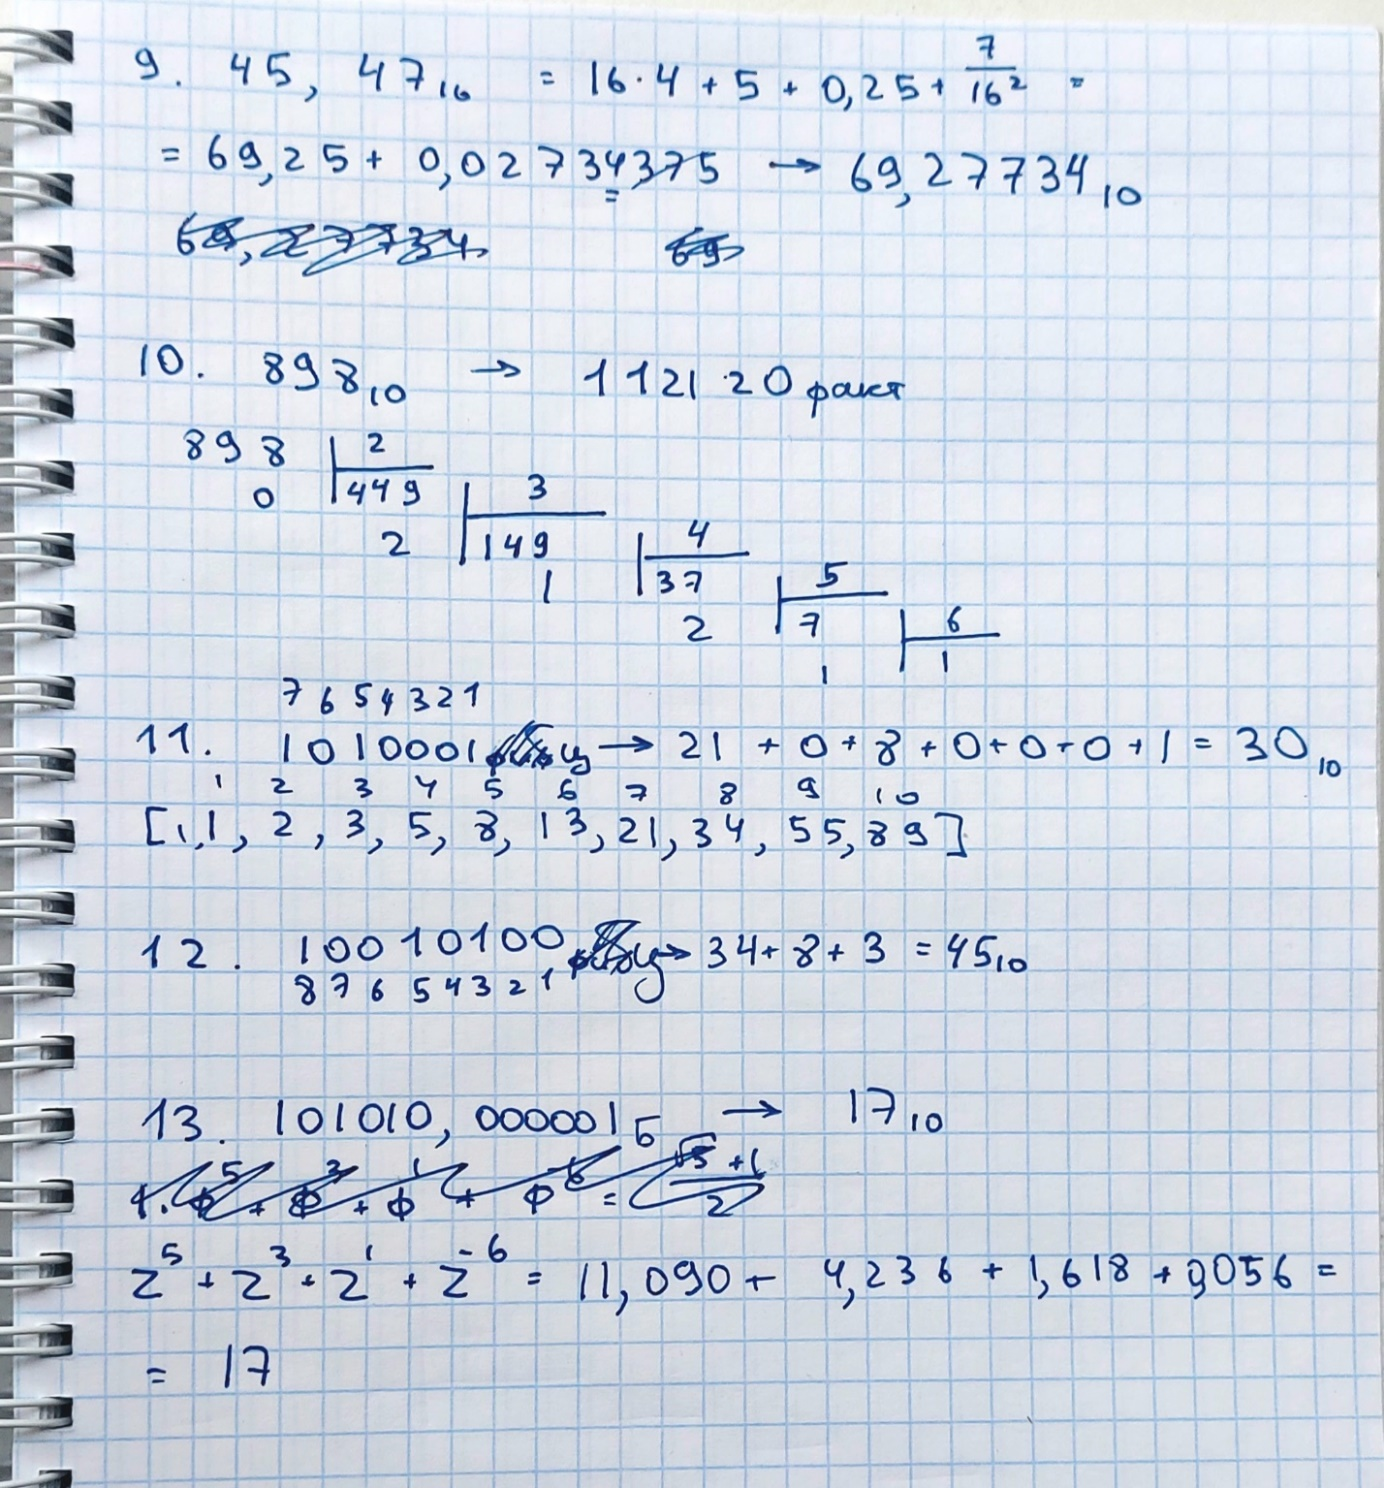 9. 45, 47₁₆ = 16·4 + 5 + 0,25 + 7/16² =
= 69,25 + 0,02734375 → 69,27734₁₀
69,27734 69
10. 898₁₀ → 112120 факт
898 | 2
0 | 449 | 3
2 | 149 | 4
1 | 37 | 5
2 | 7 | 6
1 | 1
7 6 5 4 3 2 1
11. 1010001 ц → 21 + 0 + 8 + 0 + 0 + 0 + 1 = 30₁₀
1 2 3 4 5 6 7 8 9 10
[1,1, 2, 3, 5, 8, 13, 21, 34, 55, 89]
12. 10010100 ц → 34 + 8 + 3 = 45₁₀
8 7 6 5 4 3 2 1
13. 101010, 000001Б → 17₁₀
z⁵ + z³ + z¹ + z⁻⁶ = 11,090 + 4,236 + 1,618 + 0,056 =
= 17